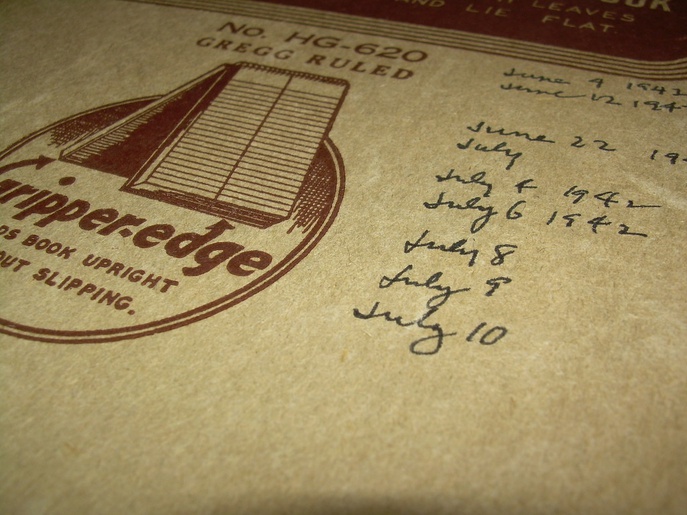 LEAVES
AND LIE FLAT
No. HG-620
GREGG RULED
gripper-edge
BOOK UPRIGHT
OUT SLIPPING.
June 4 1942
June 12 194
June 22 19
July
July 4 1942
July 6 1942
July 8
July 9
July 10